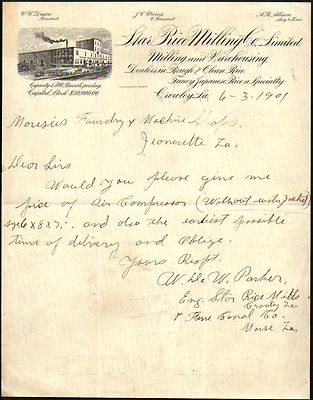 W. W. Duson
President
J. C. Morris
V. President
A. B. Allison
Sec'y & Treas.
Star Rice Milling Co. Limited
Milling and Warehousing
Dealers in Rough & Clean Rice
Fancy Japanese Rice a Specialty
Capacity Barrels per day
Capital Stock $50,000.00
Crowley, La. 6-3-1901
Moresius Foundry & Machine Works
Jeanerette La.
Dear Sirs
Would you please give me
price of Air Compressor (without water jacket)
size 6 x 8 x 7. and also the earliest possible
time of delivery and Oblige.
Yours Respt.
W. De W. Parker,
Eng. Star Rice Mills
Crowley La
Canal Co.
Morse La.